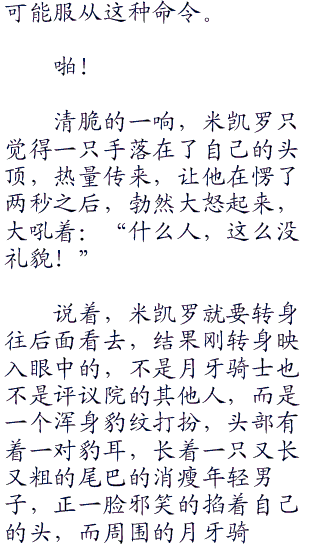 可能服从这种命令。
啪！
清脆的一响，米凯罗只
觉得一只手落在了自己的头
顶，热量传来，让他在愣了
两秒之后，勃然大怒起来，
大吼着：“什么人，这么没
礼貌！”
说着，米凯罗就要转身
往后面看去，结果刚转身映
入眼中的，不是月牙骑士也
不是评议院的其他人，而是
一个浑身豹纹打扮，头部有
着一对豹耳，长着一只又长
又粗的尾巴的消瘦年轻男
子，正一脸邪笑的掐着自己
的头，而周围的月牙骑